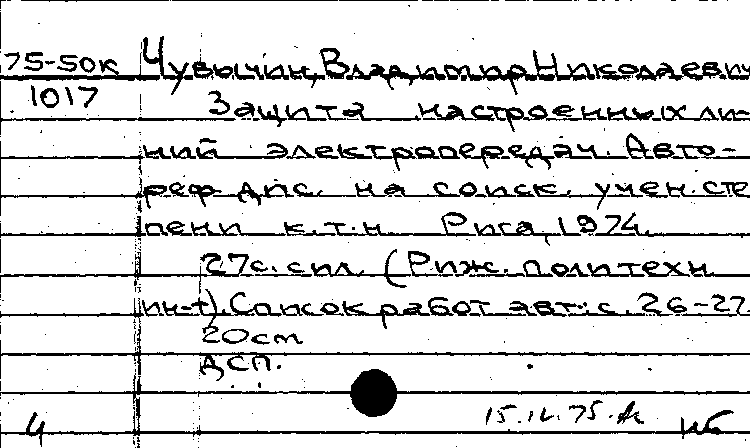 75-50к Чувычин, Владимир Николаевич
1017 Защита настроенных ли-
ний электропередач. Авто-
реф дис. на соиск. учен. сте
пени к.т.н. Рига, 1974.
27с. с ил. (Риж. политехн
ин-т). Список работ авт.: с. 26-27
20см
ДСП.
4 15.IV.75. нб